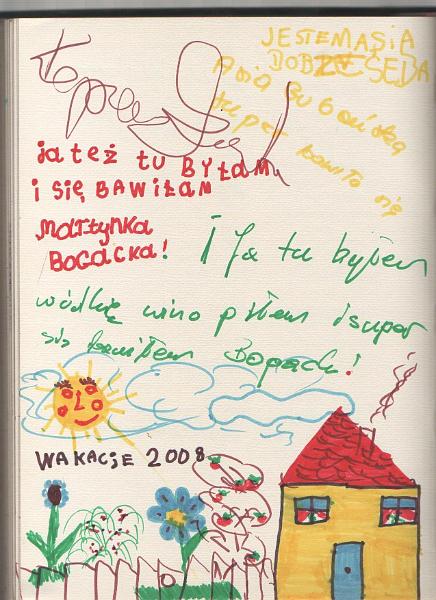 JESTEMASIA
Asia
super bawiła się
ja też tu BYŁAM
i SIĘ BAWIŁAM
MARTYNKA
BOGACKA!
i Ja tu byłem
wódkę wino piłem i super
się bawiłem Bogacki!
WAKACJE 2008